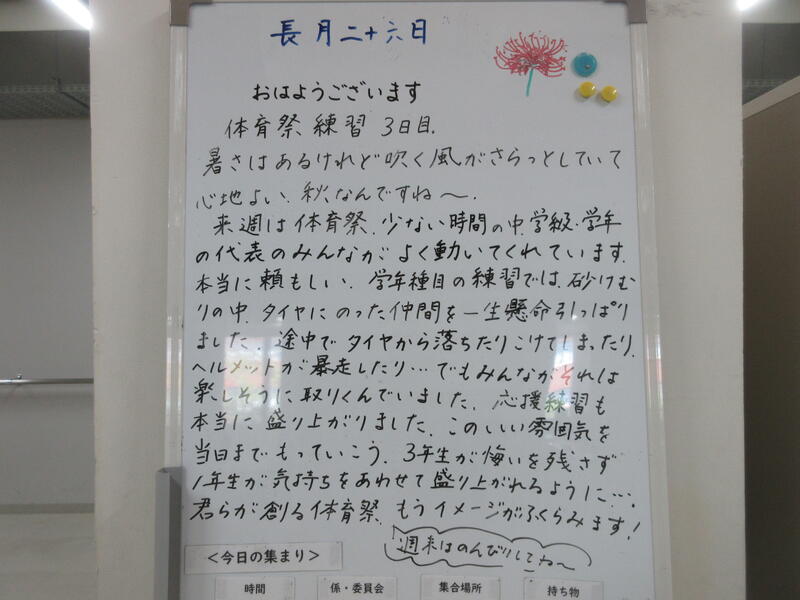 長月二十六日
おはようございます
体育祭練習 3日目.
暑さはあるけれど吹く風がさらっとしていて
心地よい. 秋なんですね〜.
来週は体育祭. 少ない時間の中. 学級・学年
の代表のみんながよく動いてくれています.
本当に頼もしい. 学年種目の練習では. 砂けむ
りの中. タイヤにのった仲間を一生懸命引っぱり
ました. 途中でタイヤから落ちたりこけてしまったり.
ヘルメットが暴走したり… でもみんながそれは
楽しそうに取りくんでいました. 応援練習も
本当に盛り上がりました. このいい雰囲気を
当日までもっていこう. 3年生が悔いを残さず
1年生が気持ちをあわせて盛り上がれるように….
君らが創る体育祭. もうイメージがふくらみます!
週末はのんびりしてね〜
<今日の集まり>
時間 係・委員会 集合場所 持ち物